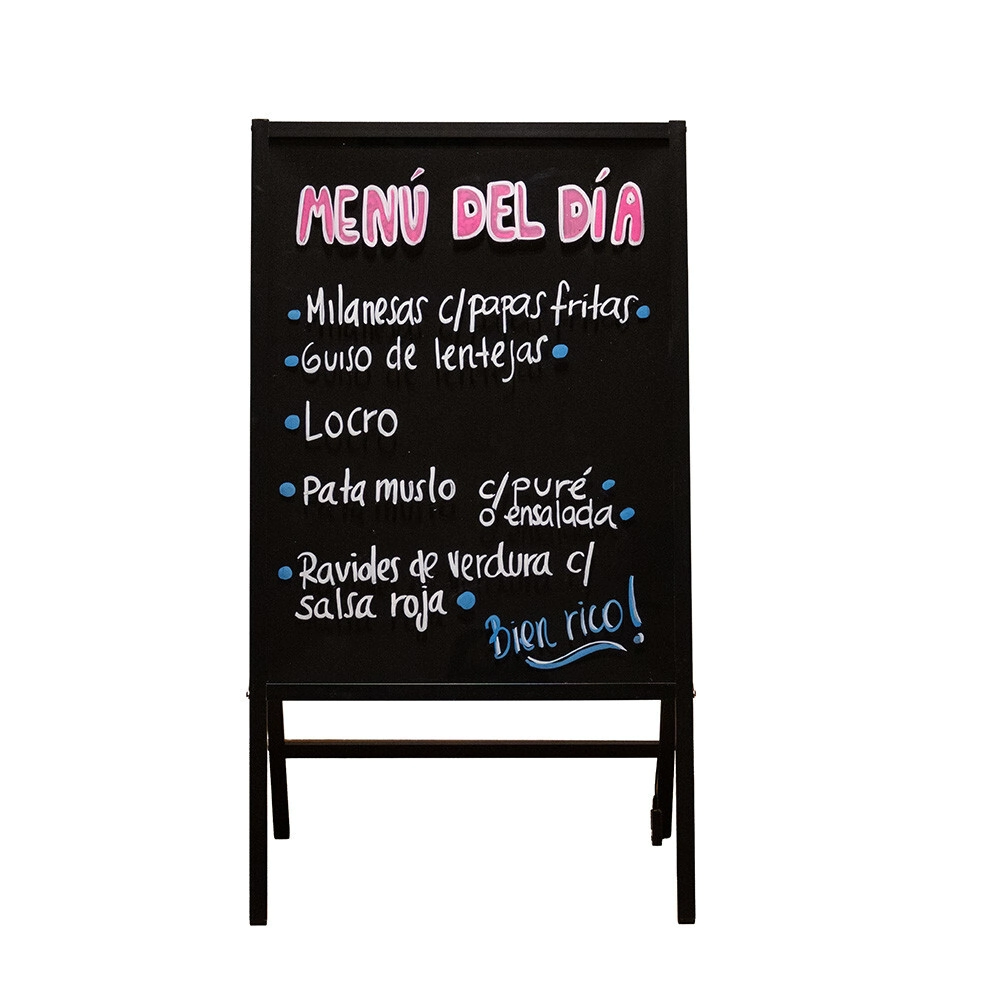 MENÚ DEL DÍA
• Milanesas c/papas fritas •
• Guiso de lentejas •
• Locro
• Pata muslo c/puré •
o ensalada •
• Ravioles de verdura c/
salsa roja •
Bien rico!